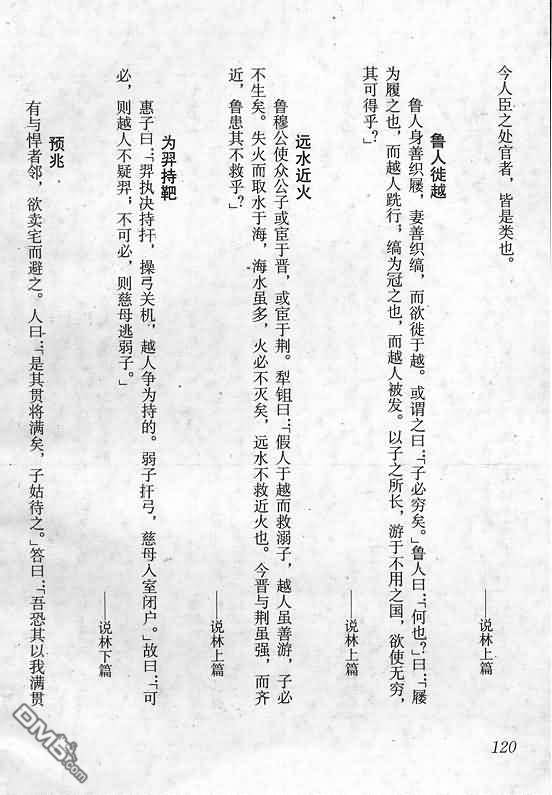 今人臣之处官者，皆是类也。
——说林上篇
鲁人徙越
鲁人身善织屦，妻善织缟，而欲徙于越。或谓之曰：「子必穷矣。」鲁人曰：「何也？」曰：「屦
为履之也，而越人跣行，缟为冠之也，而越人被发。以子之所长，游于不用之国，欲使无穷，
其可得乎？」
——说林上篇
远水近火
鲁穆公使众公子或宦于晋，或宦于荆。犁钼曰：「假人于越而救溺子，越人虽善游，子必
不生矣。失火而取水于海，海水虽多，火必不灭矣，远水不救近火也。今晋与荆虽强，而齐
近，鲁患其不救乎？」
——说林上篇
为羿持靶
惠子曰：「羿执决持扞，操弓关机，越人争为持的。弱子扞弓，慈母入室闭户。」故曰：「可
必，则越人不疑羿；不可必，则慈母逃弱子。」
——说林下篇
预兆
有与悍者邻，欲卖宅而避之。人曰：「是其贯将满矣，子姑待之。」答曰：「吾恐其以我满贯
120
DM5.com